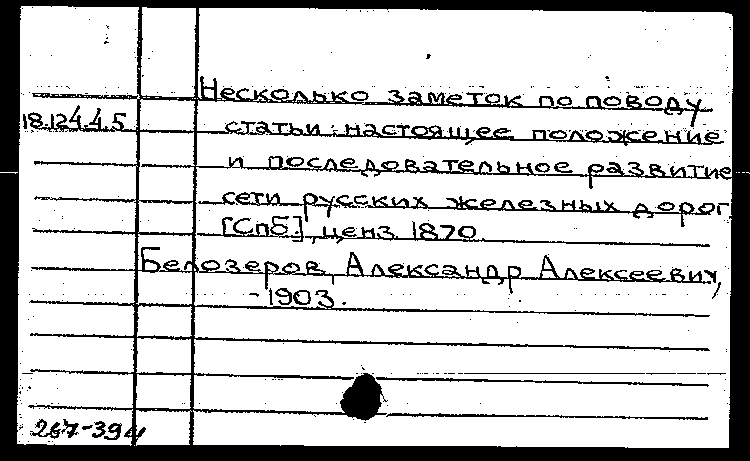 Несколько заметок по поводу
18.124.4.5 статьи: настоящее положение
и последовательное развитие
сети русских железных дорог
[Спб.], ценз 1870.
Белозеров, Александр Алексеевич,
-1903.
267-394